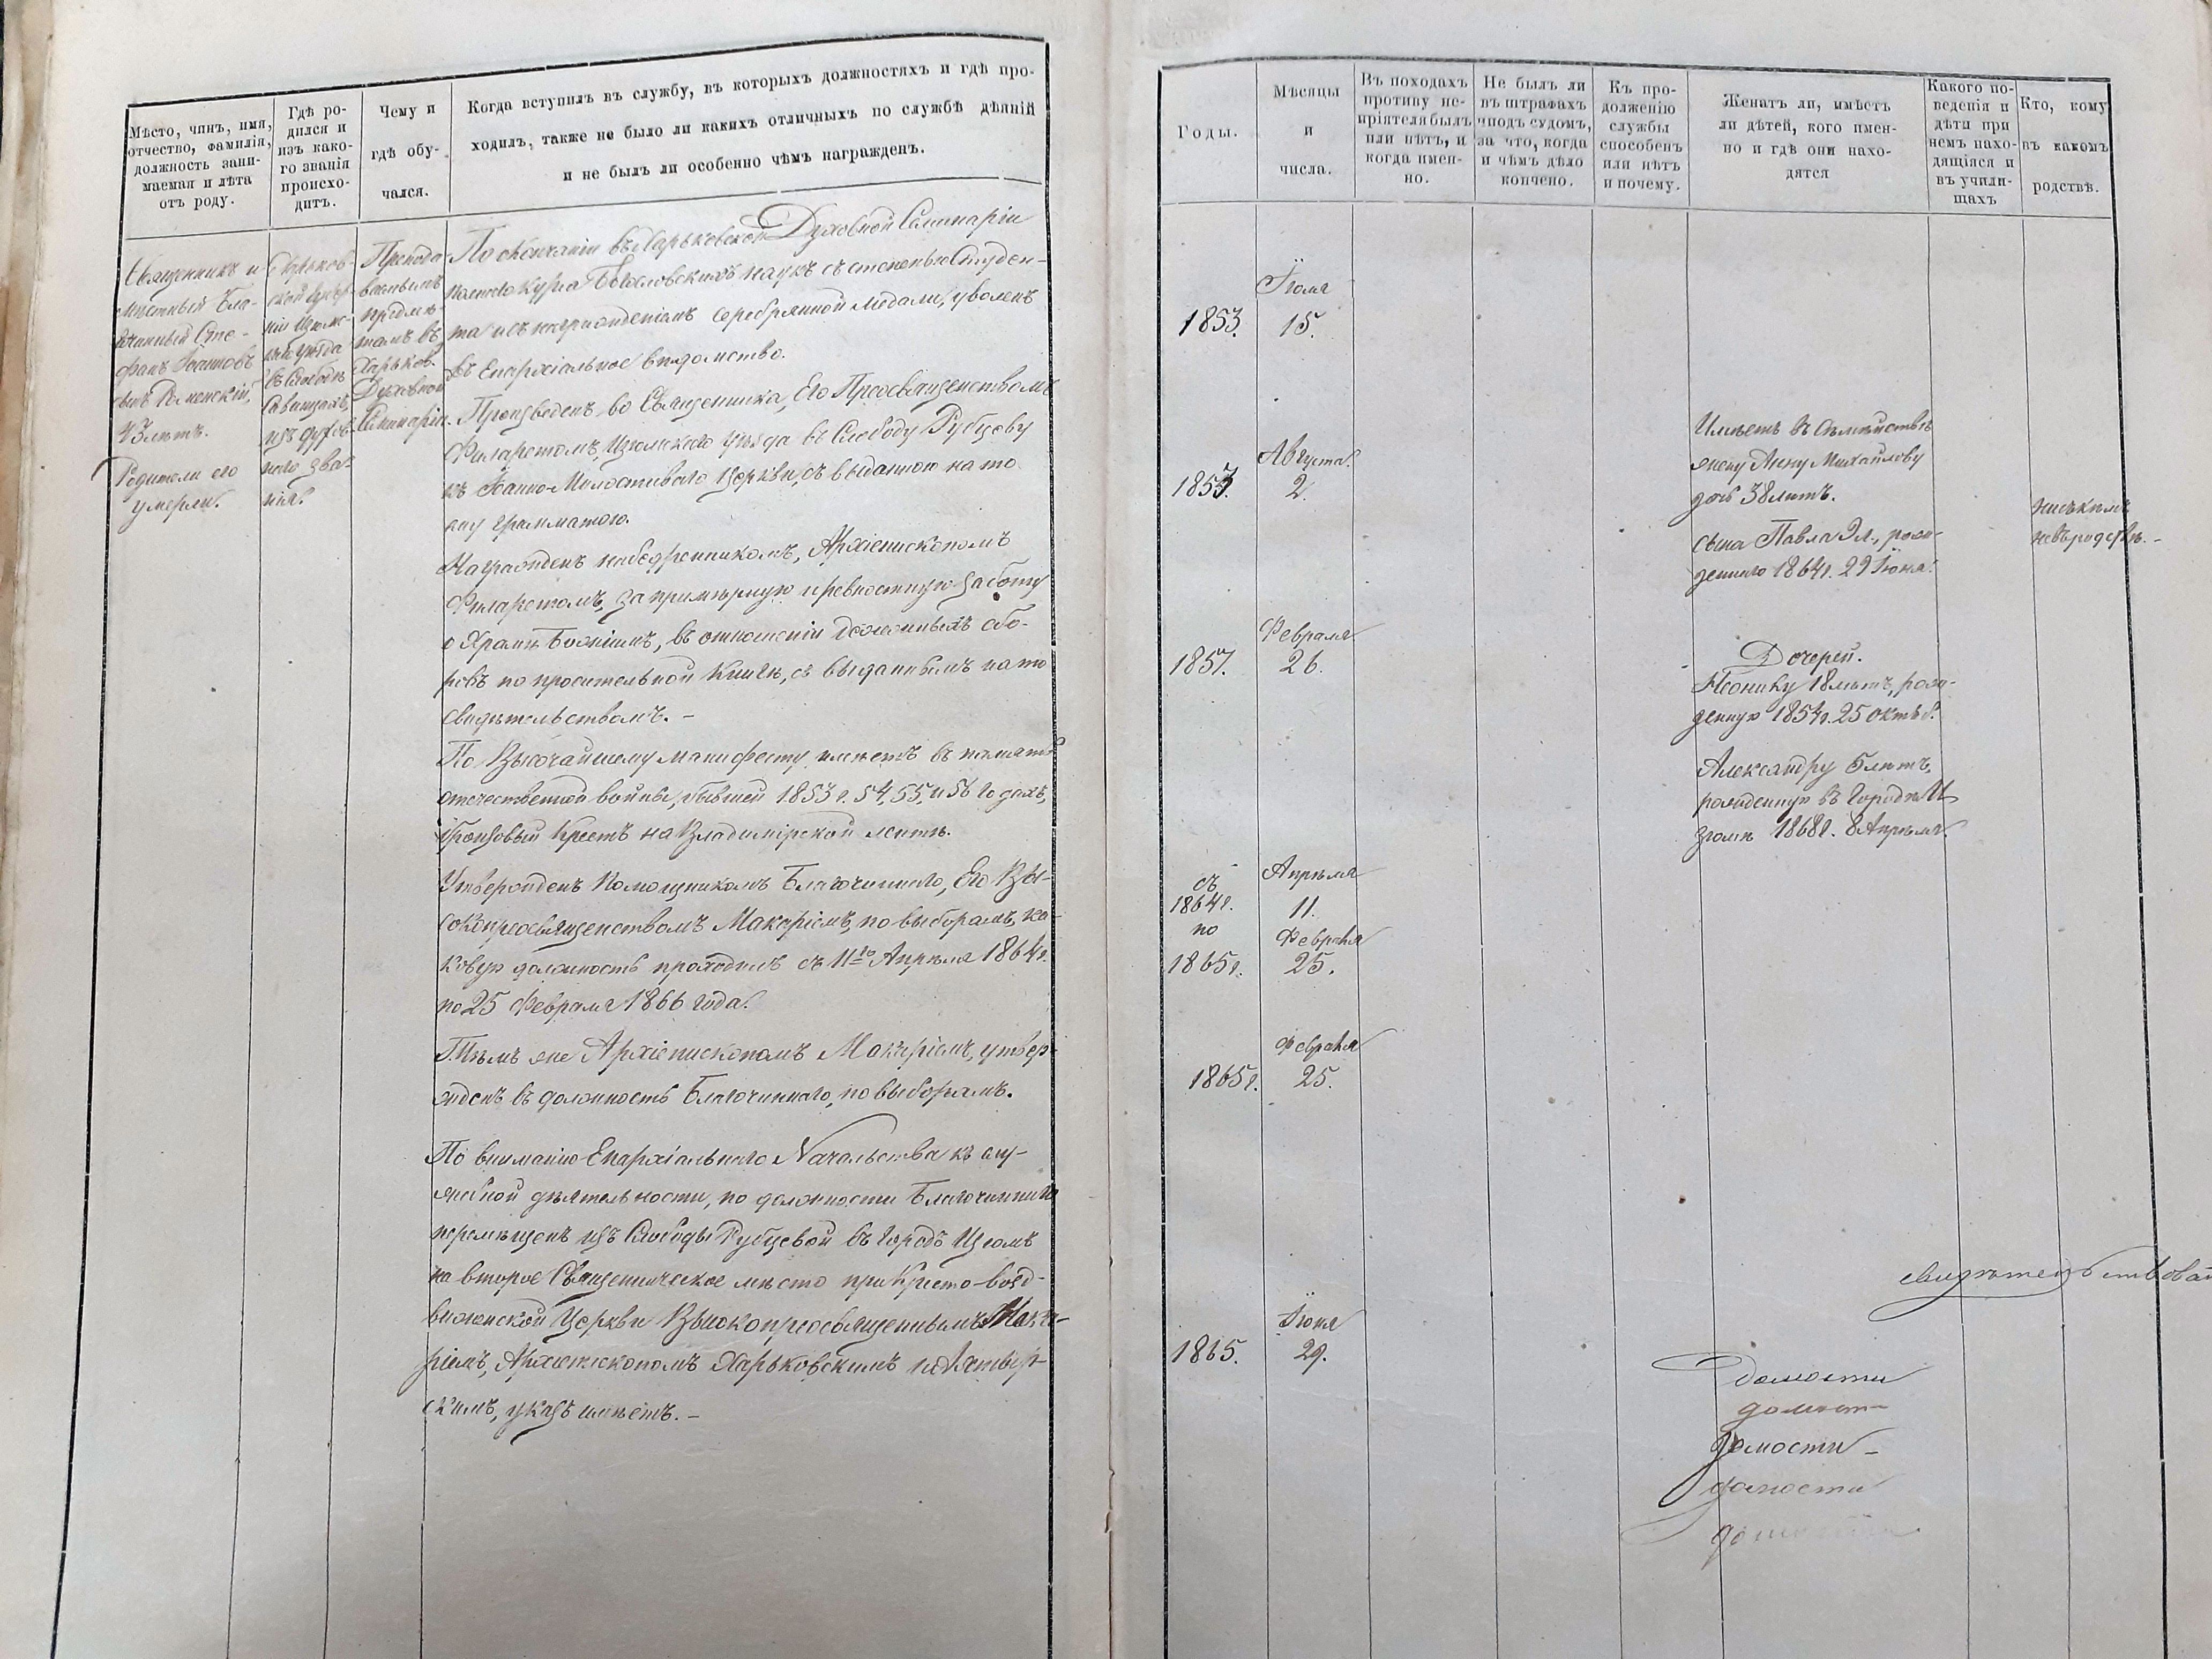 Мѣсто, чинъ, имя,
отчество, фамилія,
должность зани-
маемая и лѣта
отъ роду.
Гдѣ ро-
дился и
изъ како-
го званія
происхо-
дитъ.
Чему и
гдѣ обу-
чался.
Когда вступилъ въ службу, въ которыхъ должностяхъ и гдѣ про-
ходилъ, также не было ли какихъ отличныхъ по службѣ дѣяній
и не былъ ли особенно чѣмъ награжденъ.
Священникъ и
мѣстный Бла-
гочинный Сте-
фанъ Іоанновъ
сынъ Раменскій,
43 лѣтъ.
Родители его
умерли.
Харьков-
ской Губер-
ніи Изюмс-
каго Уѣзда
въ Слободѣ
Савинцахъ,
изъ духов-
наго зва-
нія.
Препода-
ваемымъ
предме-
тамъ въ
Харьков.
Духовной
Семинаріи.
По окончаніи въ Харьковской Духовной Семинаріи
полнаго курса Богословскихъ наукъ съ степенью Студен-
та и съ награжденіемъ серебрянной медали, уволенъ
въ Епархіальное вѣдомство.
Произведенъ во Священника, Его Преосвященствомъ
Филаретомъ, Изюмскаго уѣзда въ Слободу Рубцову
къ Іоанно-Милостиваго церкви, съ выданною на то
ему грамматою.
Награжденъ набедренникомъ, Архіепископомъ
Филаретомъ, за примѣрную и ревностную заботу
о Храмѣ Божіемъ, въ отношеніи денежныхъ сбо-
ровъ по просительной книгѣ, съ выданнымъ на то
свидѣтельствомъ. –
По Высочайшему манифесту имѣетъ въ память
отечественной войны, бывшей 1853 г. 54, 55, и 56 годахъ,
бронзовый Крестъ на Владимірской лентѣ.
Утвержденъ Помощникомъ Благочиннаго, Его Вы-
сокопреосвященствомъ Макаріемъ, по выборамъ, ка-
ковую должность проходилъ съ 11го Апрѣля 1864 г.
по 25 Февраля 1866 года.
Тѣмъ же Архіепископомъ Макаріемъ, утвер-
жденъ въ должность Благочиннаго, по выборамъ.
По вниманію Епархіальнаго Начальства къ слу-
жебной дѣятельности, по должности Благочиннаго
перемѣщенъ изъ Слободы Рубцевой въ городъ Изюмъ
на второе Священническое мѣсто при Кресто-возд-
виженской Церкви Высокопреосвященнымъ Мака-
ріемъ, Архіепископомъ Харьковскимъ и Ахтыр-
скимъ, указъ имѣетъ. –
Годы.
Мѣсяцы
и
числа.
Въ походахъ
противу не-
пріятеля былъ
или нѣтъ, и
когда имен-
но.
Не былъ ли
въ штрафахъ
и подъ судомъ,
за что, когда
и чѣмъ дѣло
кончено.
Къ про-
долженію
службы
способенъ
или нѣтъ
и почему.
Женатъ ли, имѣетъ
ли дѣтей, кого имен-
но и гдѣ они нахо-
дятся
Какого по-
веденія и
дѣти при
немъ нахо-
дящіяся и
въ учили-
щахъ
Кто, кому
въ какомъ
родствѣ.
Іюля
1853. 15.
Августа.
1853. 2.
Февраля
1857. 26.
съ Апрѣля
1864 г. 11.
по Февраля
1865 г. 25.
Февраля
1865 г. 25.
Іюня
1865. 29.
Имѣетъ въ Семействѣ
жену Анну Михайлову
дочь 38 лѣтъ.
сына Павла 9 л., рож-
деннаго 1864 г. 29 Іюня.
Дочерей.
Леониду 18 лѣтъ, рож-
денную 1854 г. 25 Октяб.
Александру 5 лѣтъ,
рожденную въ городѣ И-
зюмѣ 1868 г. 8 Апрѣля
ни съ кѣмъ
не въ родствѣ. –
свидѣтельствовал
домости
домости –